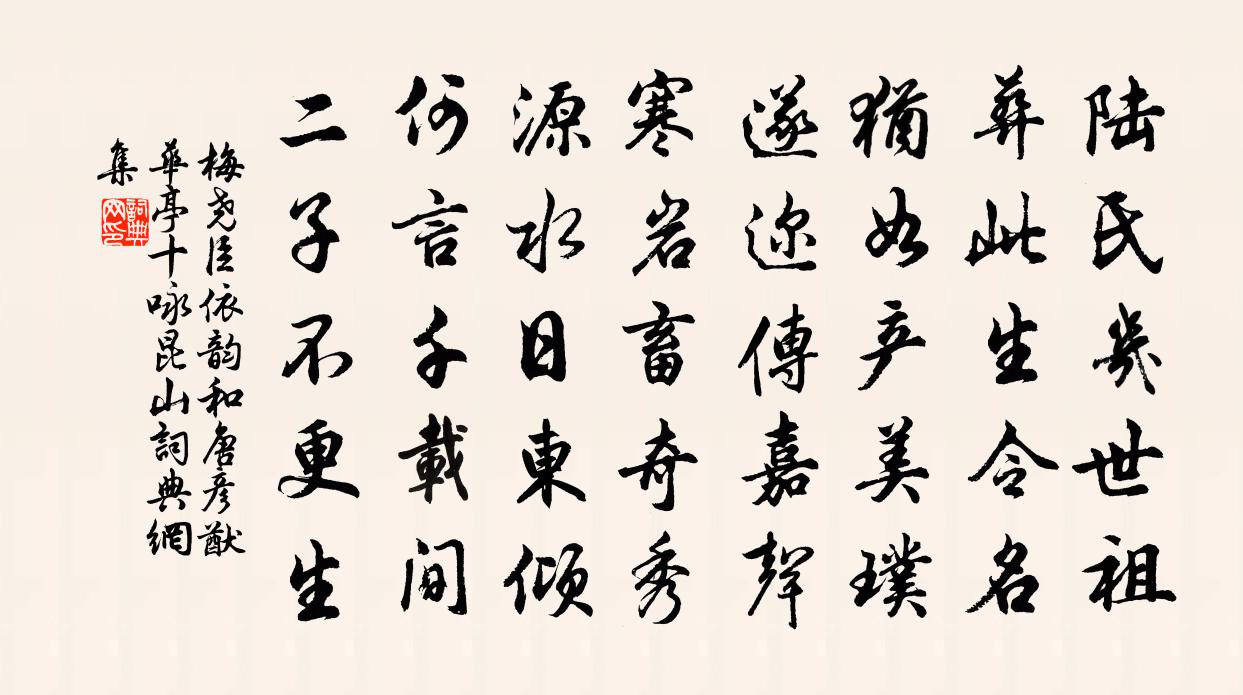 陆氏几世祖
葬此生令名
猶如产美璞
遂迩傳嘉聲
寒岩畜奇秀
源水日東倾
何言千載間
二子不更生
梅尧臣依韵和唐彦猷
華亭十咏昆山詞典網
集
詞典网印